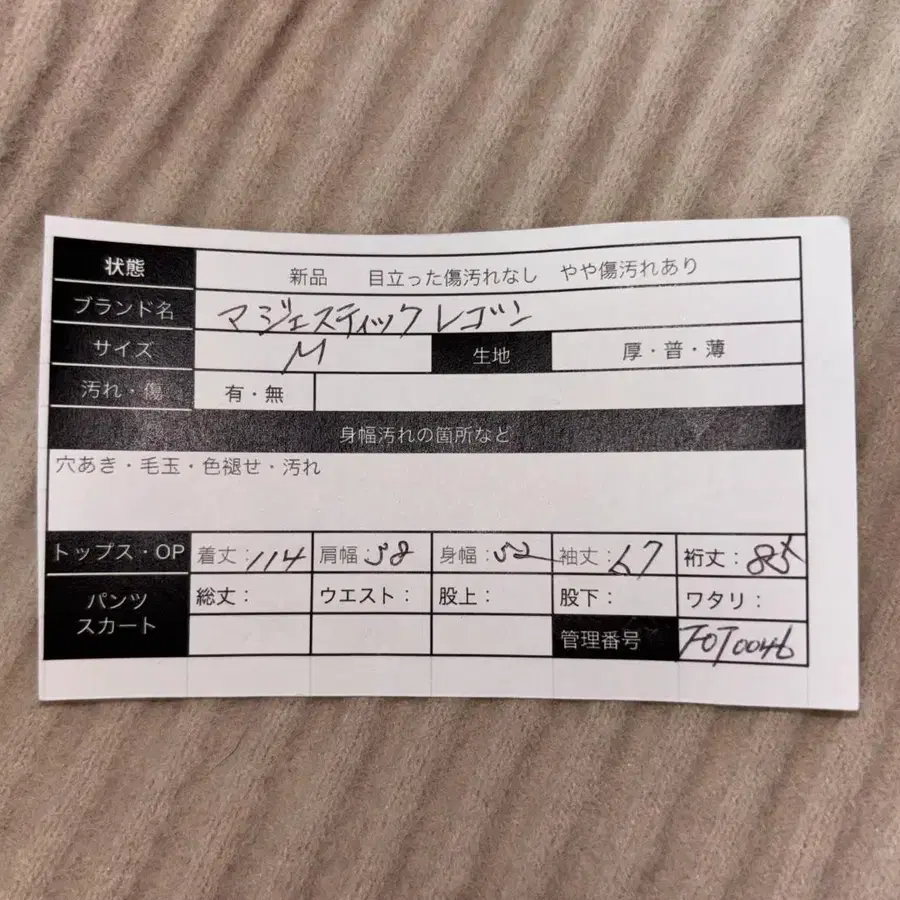 状態 新品 目立った傷汚れなし やや傷汚れあり
ブランド名 マジェスティックレゴン
サイズ M 生地 厚・普・薄
汚れ・傷 有・無
身幅汚れの箇所など
穴あき・毛玉・色褪せ・汚れ
トップス・OP 着丈：114 肩幅：38 身幅：52 袖丈：67 裄丈：85
パンツ スカート 総丈： ウエスト： 股上： 股下： ワタリ：
管理番号 FOT0046